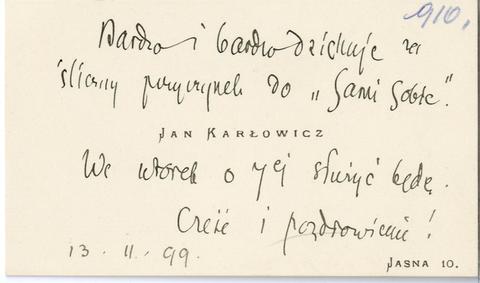 910.
Bardzo i bardzo dziękuję za
śliczny przyczynek do „Sami Sobie".
JAN KARŁOWICZ
We wtorek o 7ej służyć będę.
Cześć i pozdrowienie!
13. II. 99.
JASNA 10.